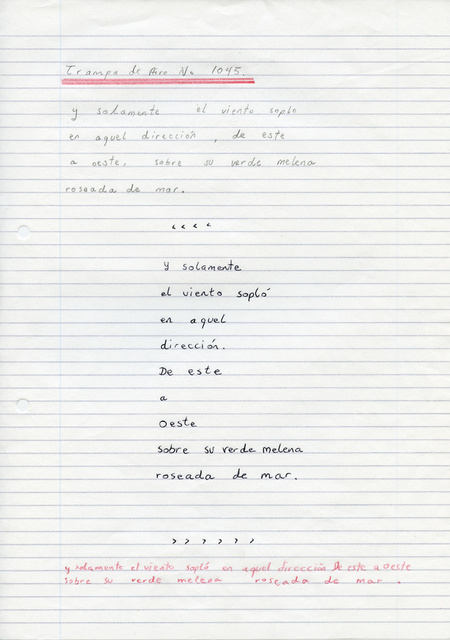 Trampa de Aire No 1045.
y solamente el viento soplo
en aquel dirección, de este
a oeste, sobre su verde melena
roseada de mar.
‹ ‹ ‹ ‹
y solamente
el viento sopló
en aquel
dirección.
De este
a
Oeste
sobre su verde melena
roseada de mar.
› › › › › ›
y solamente el viento sopló en aquel dirección De este a oeste
sobre su verde melena roseada de mar.